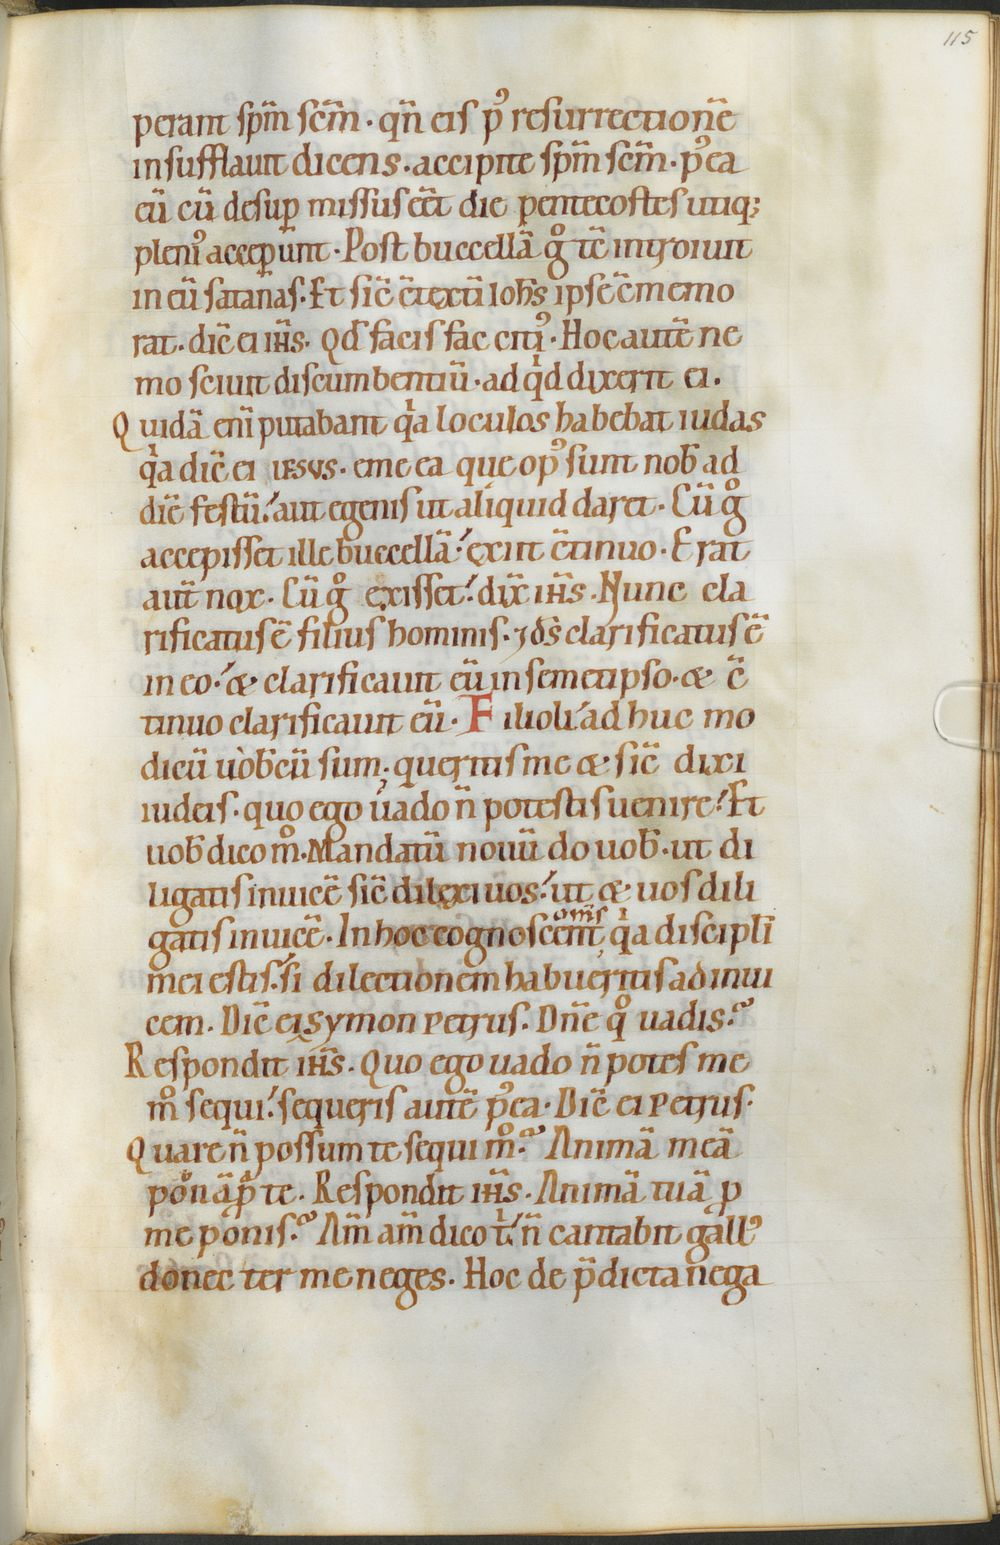 115
perant sp̄m sc̄m · qn̄ eis pꝰ resurrectione̅
insufflauit dicens · accipite sp̄m sc̄m · pꝰea
cū cū desuꝑ missus eēt die pentecostes utiq;
pleniꝰ acceꝑunt · Post buccellā gͦ tc̄ introiuit
in eū satanas · Et sic̄ c̄textū Ioh̄s ipse c̄memo
rat · dic̄ ei ih̄s · Qd̄ facis fac citiꝰ · Hoc autē ne
mo sciuit discumbentiū · ad qͥd dixerit ei ·
Quidā eni̅ putabant qͥa loculos habebat iudas
qͥa dic̄ ei iesvs · eme ea que opꝰ sunt nob̄ ad
diē festū · aut egenis ut aliquid daret · Cū gͦ
accepisset ille buccellā · exiit c̄tinuo · Erat
aut̄ nox · Cū gͦ exisset · dix̄ ih̄s · Nunc cla
rificatus ē filius hominis · ⁊ ds̄ clarificatus ē
in eo · & clarificauit eū in semetipso · & c̄
tinuo clarificauit eū · Filioli adhuc mo
dicū uobcū sum · queritis me & sic̄ dixi
iudeis · quo ego uado n̄ potestis uenire · Et
uob̄ dico mͦ · Mandatū nouū do uob̄ · ut di
ligatis inuicē sic̄ dilexi uos · ut & uos dili
gatis inuicē · In hoc cognoscent om̄s qͥa discipli
mei estis · si dilectionem habueritis ad inui
cem · Dic̄ ei symon petrus · Dn̄e qͦ uadis ·
Respondit ih̄s · Quo ego uado n̄ potes me
mͦ sequi · sequeris autē pꝰea · Dic̄ ei petrus ·
Quare n̄ possum te sequi mͦ · Animā meā
ponā ꝓ te · Respondit ih̄s · Animā tuā ꝓ
me ponis · Am̄ am̄ dico tͥ · n̄ cantabit gallꝰ
donec ter me neges · Hoc de p̄dicta nega